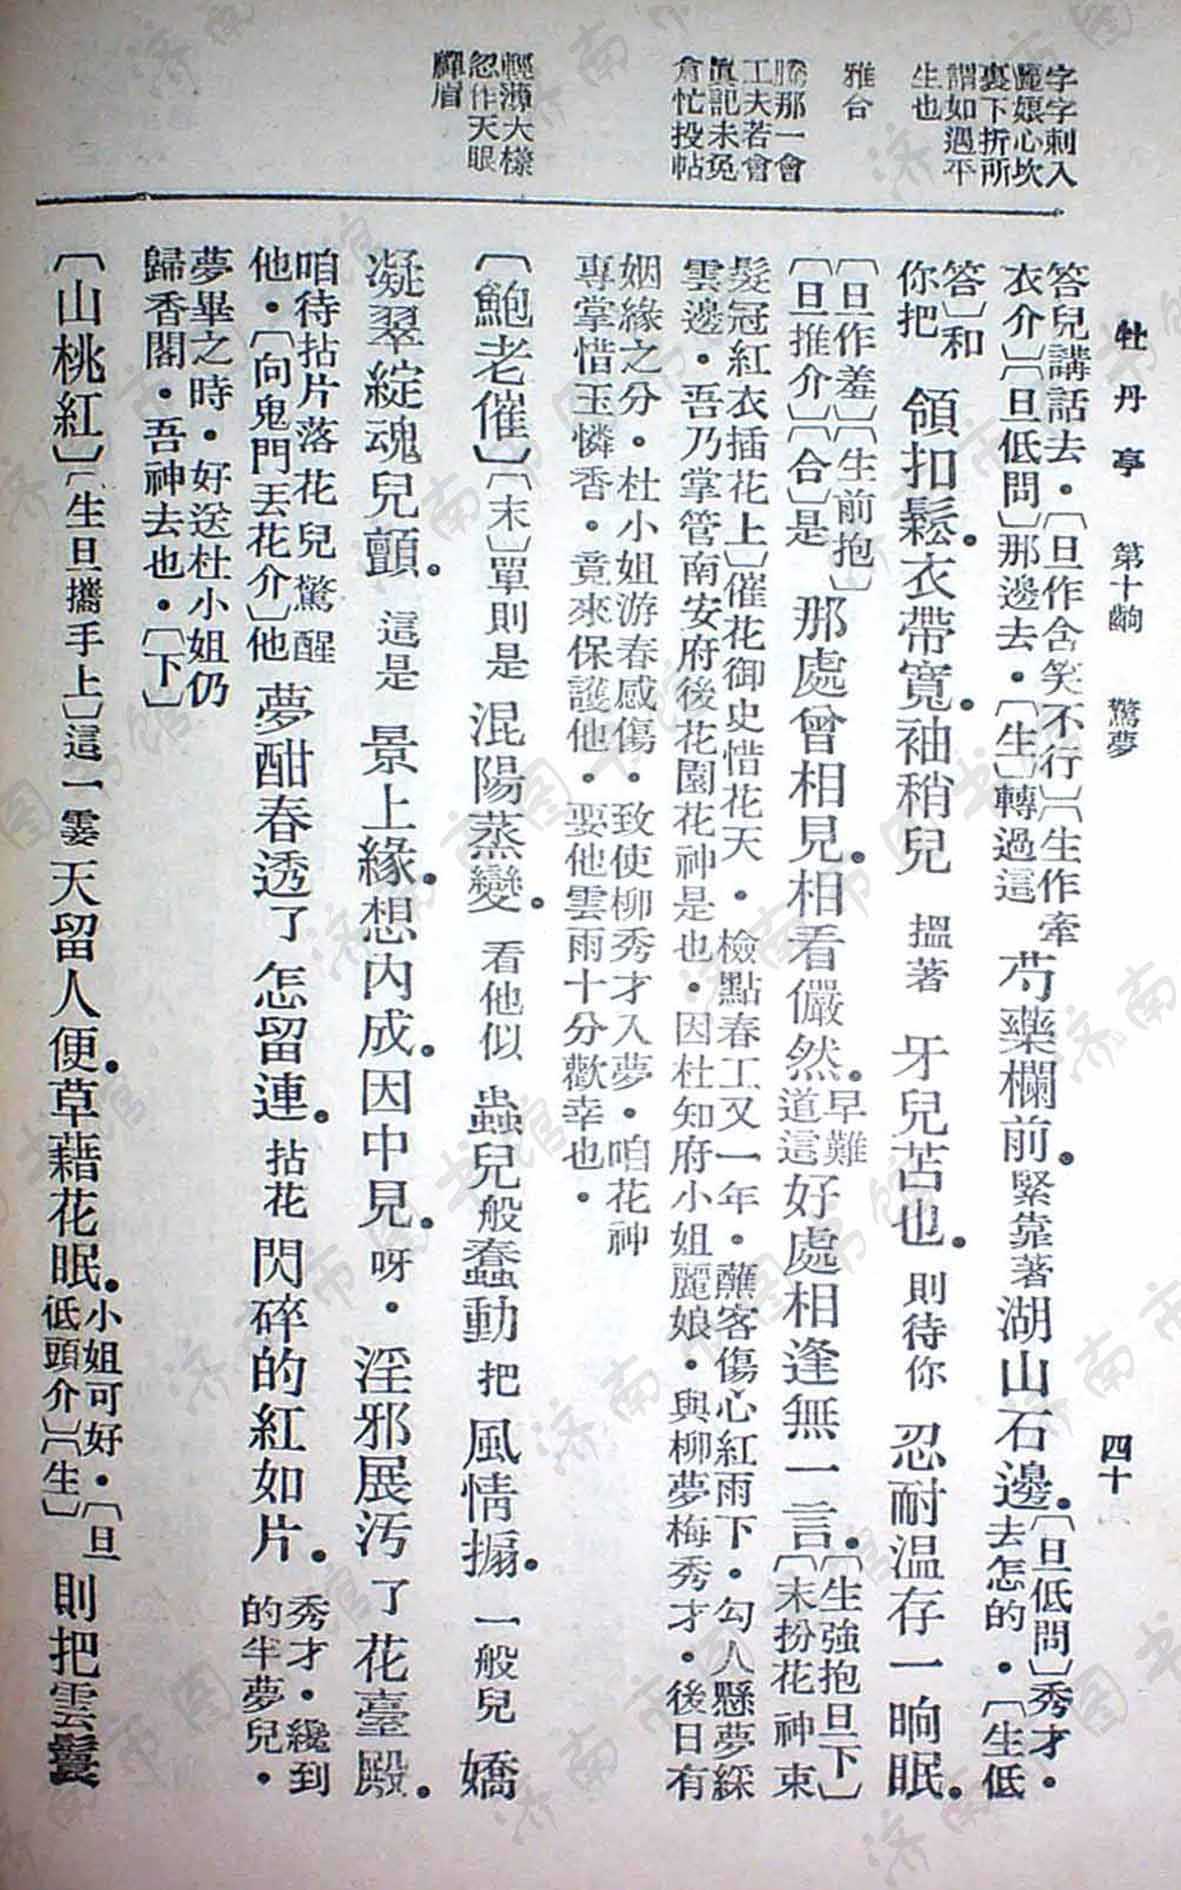 牡丹亭　第十齣　驚夢　四十
字字刺入
麗娘心坎
裏下折所
謂如遇平
生也
雅合
騰那一會
工夫若會
眞記未免
倉忙投帖
輕薄大樣
忽作天眼
嚲眉
答兒講話去．〔旦作含笑不行〕〔生作牽
衣介〕〔旦低問〕那邊去．〔生〕轉過這
芍藥欄前．緊靠著湖山石邊．
〔旦低問〕秀才．
去怎的．〔生低
答〕和
你把
領扣鬆．衣帶寬．袖稍兒 搵著 牙兒苫也．則待你 忍耐温存一晌眠．
〔旦作羞〕〔生前抱〕
〔旦推介〕〔合〕是
那處曾相見．相看儼然．
早難
道這
好處相逢無一言．
〔生強抱旦下〕
〔末扮花神束
髮冠紅衣插花上〕催花御史惜花天．檢點春工又一年．蘸客傷心紅雨下．勾人懸夢綵
雲邊．吾乃掌管南安府後花園花神是也．因杜知府小姐麗娘．與柳夢梅秀才．後日有
姻緣之分．杜小姐游春感傷．致使柳秀才入夢．咱花神
專掌惜玉憐香．竟來保護他．要他雲雨十分歡幸也．
〔鮑老催〕〔末〕單則是 混陽蒸變．看他似 蟲兒般蠢動 把 風情搧．一般兒 嬌
凝翠綻魂兒顫．這是 景上緣．想內成．因中見．呀．淫邪展汚了花臺殿．
咱待拈片落花兒驚醒
他．〔向鬼門丟花介〕他
夢酣春透了 怎留連．拈花 閃碎的紅如片．
秀才．纔到
的半夢兒．
夢畢之時．好送杜小姐仍
歸香閣．吾神去也．〔下〕
〔山桃紅〕〔生旦攜手上〕這一霎 天留人便．草藉花眠．
小姐可好．〔旦
低頭介〕〔生〕
則把雲鬟
济南市图书馆